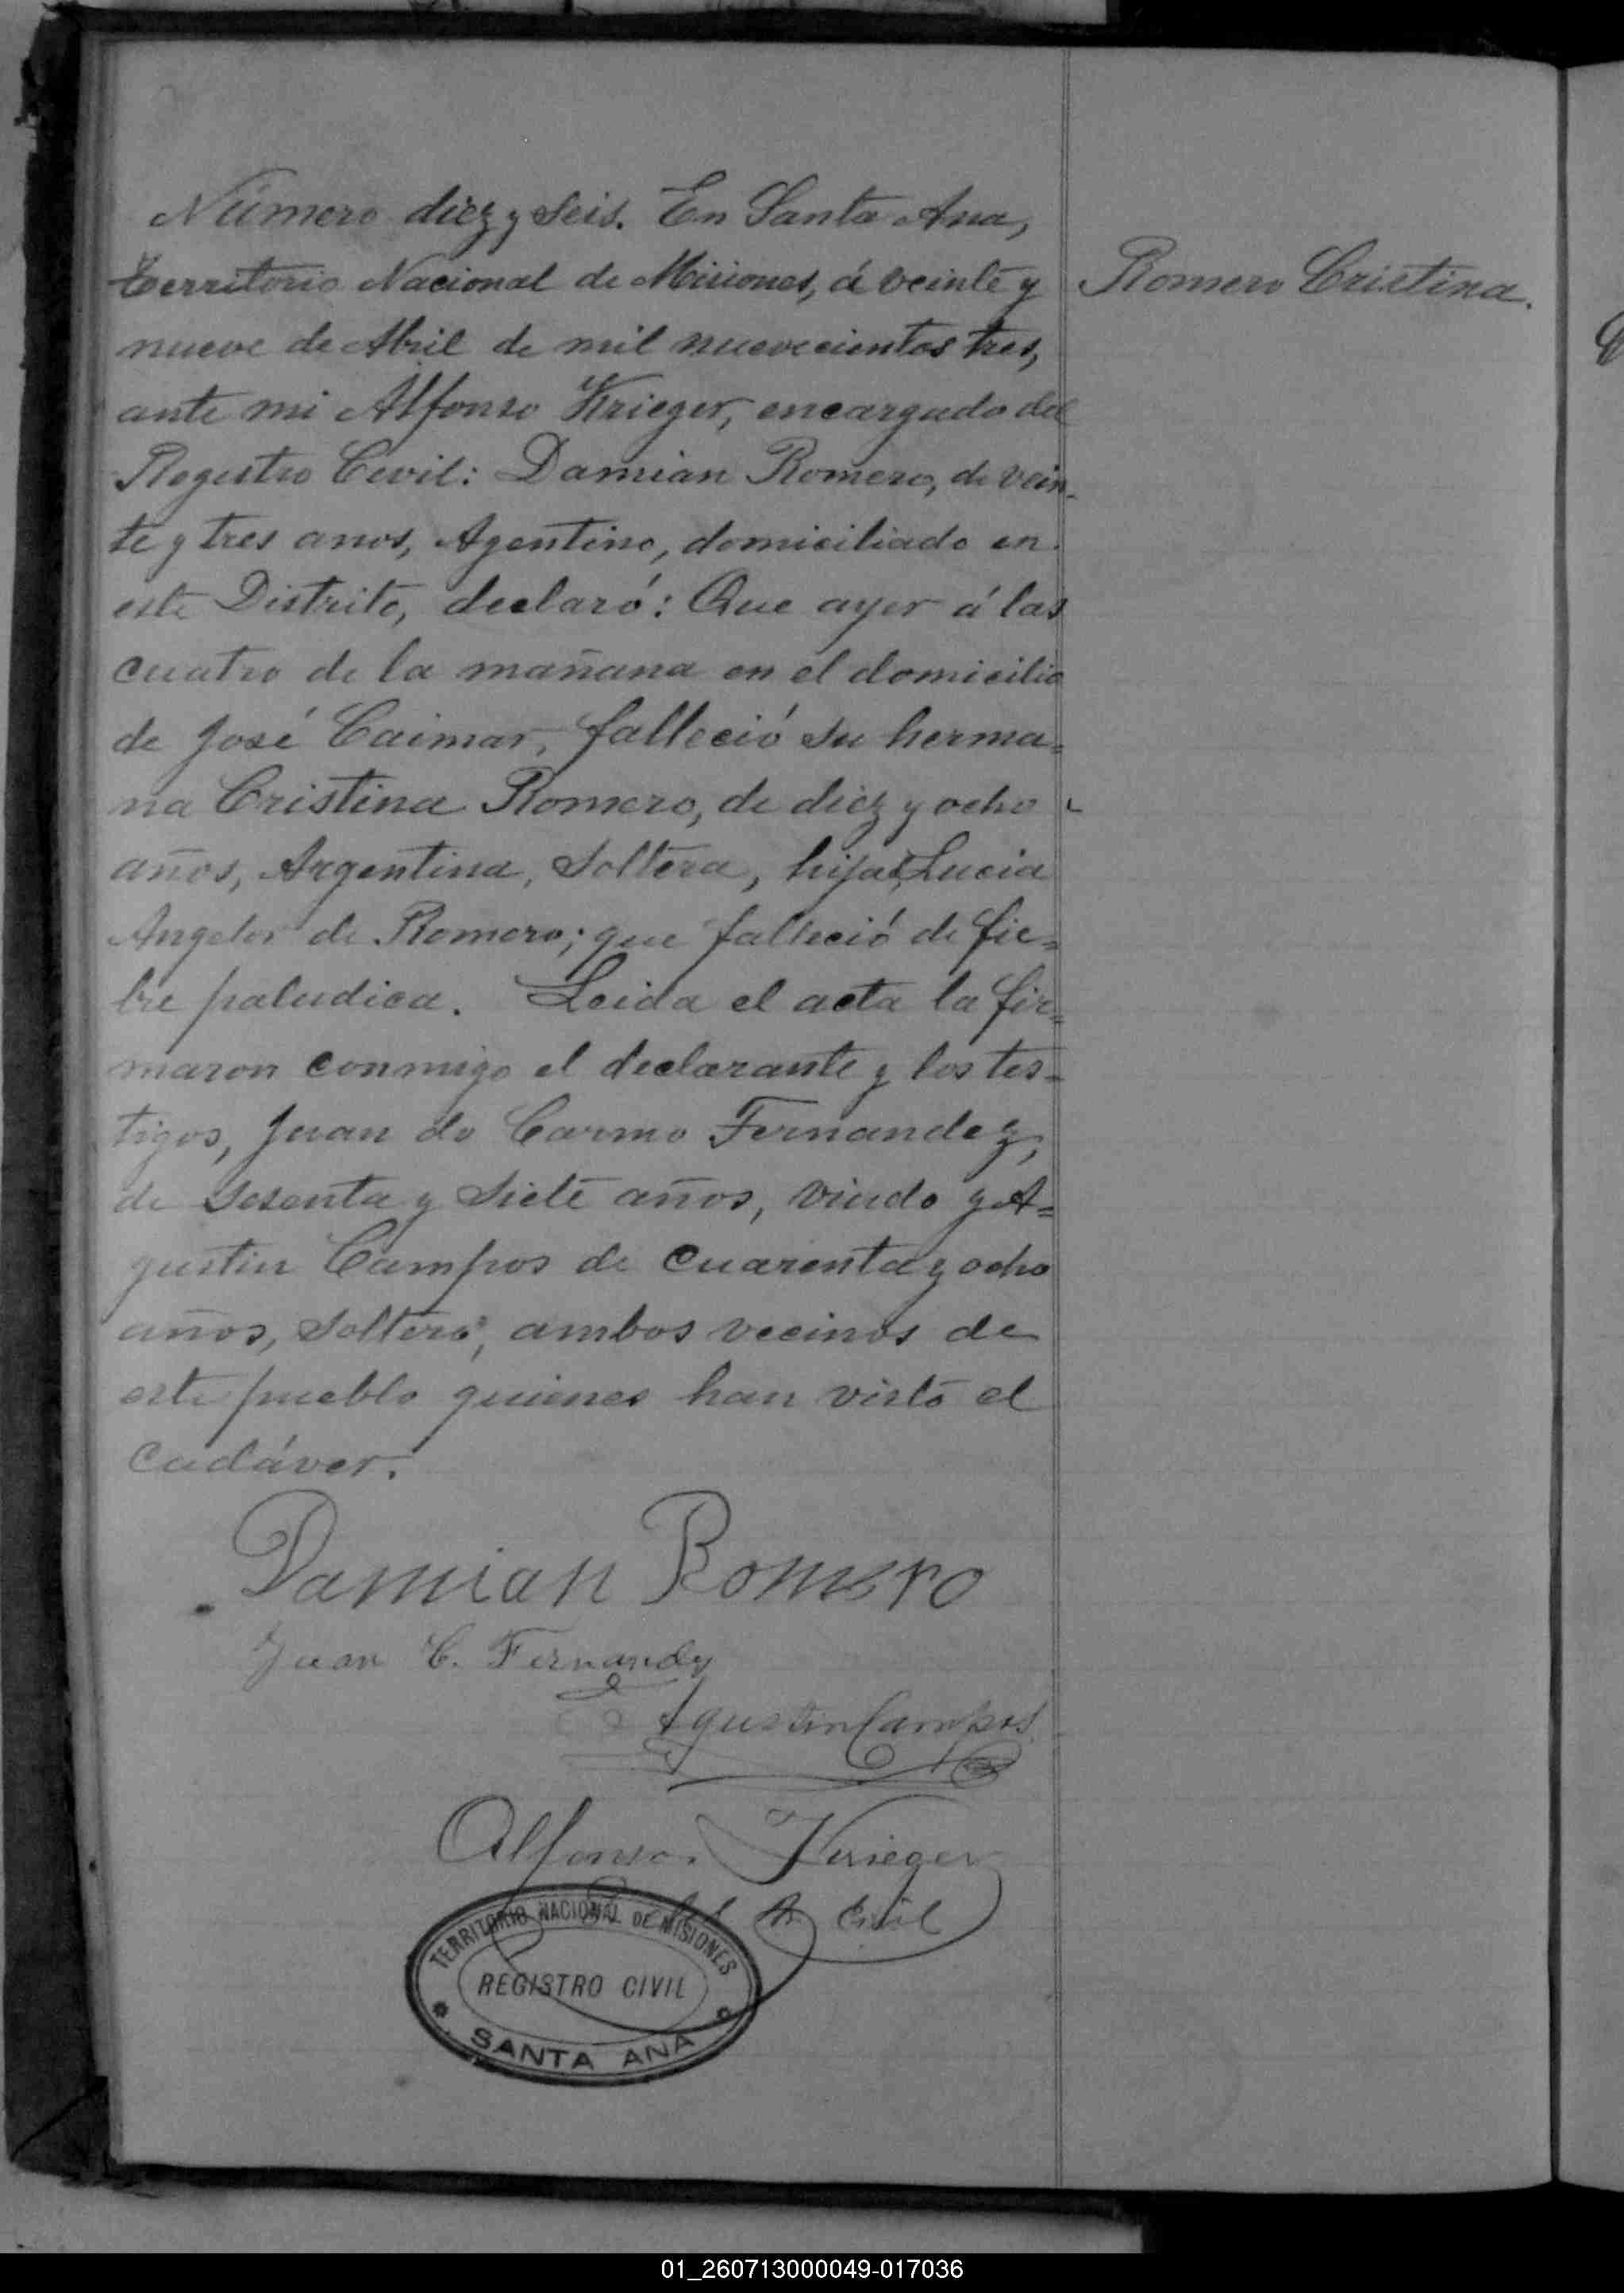 Número diez y seis. En Santa Ana,
territorio Nacional de Misiones, á veinte y
Romero Cristina.
nueve de Abril de mil nuevecientos tres,
ante mi Alfonso Krieger, encargado del
Registro Civil: Damian Romero, de vein-
te y tres anos, Agentino, domiciliado en
este Distrito, declaró: Que ayer á las
cuatro de la mañana en el domicilio
de José Caimar, falleció su herma=
na Cristina Romero, de diez y ocho
años, Argentina, Soltera, hija Lucia
de Romero; que falleció de fie=
bre paludica. Leida el acta la fir=
maron conmigo el declarante y los tes=
tigos, Juan do Carmo Fernandez,
de sesenta y siete años, viudo y A=
gustin Campos de cuarenta y ocho
años, soltero, ambos vecinos de
este pueblo quienes han visto el
cadáver.
Damian Romero
Juan C. Fernandez
Agustin Campos
Alfonso Krieger
R Civil
TERRITORIO NACIONAL DE MISIONES
REGISTRO CIVIL
SANTA ANA
01_260713000049-017036